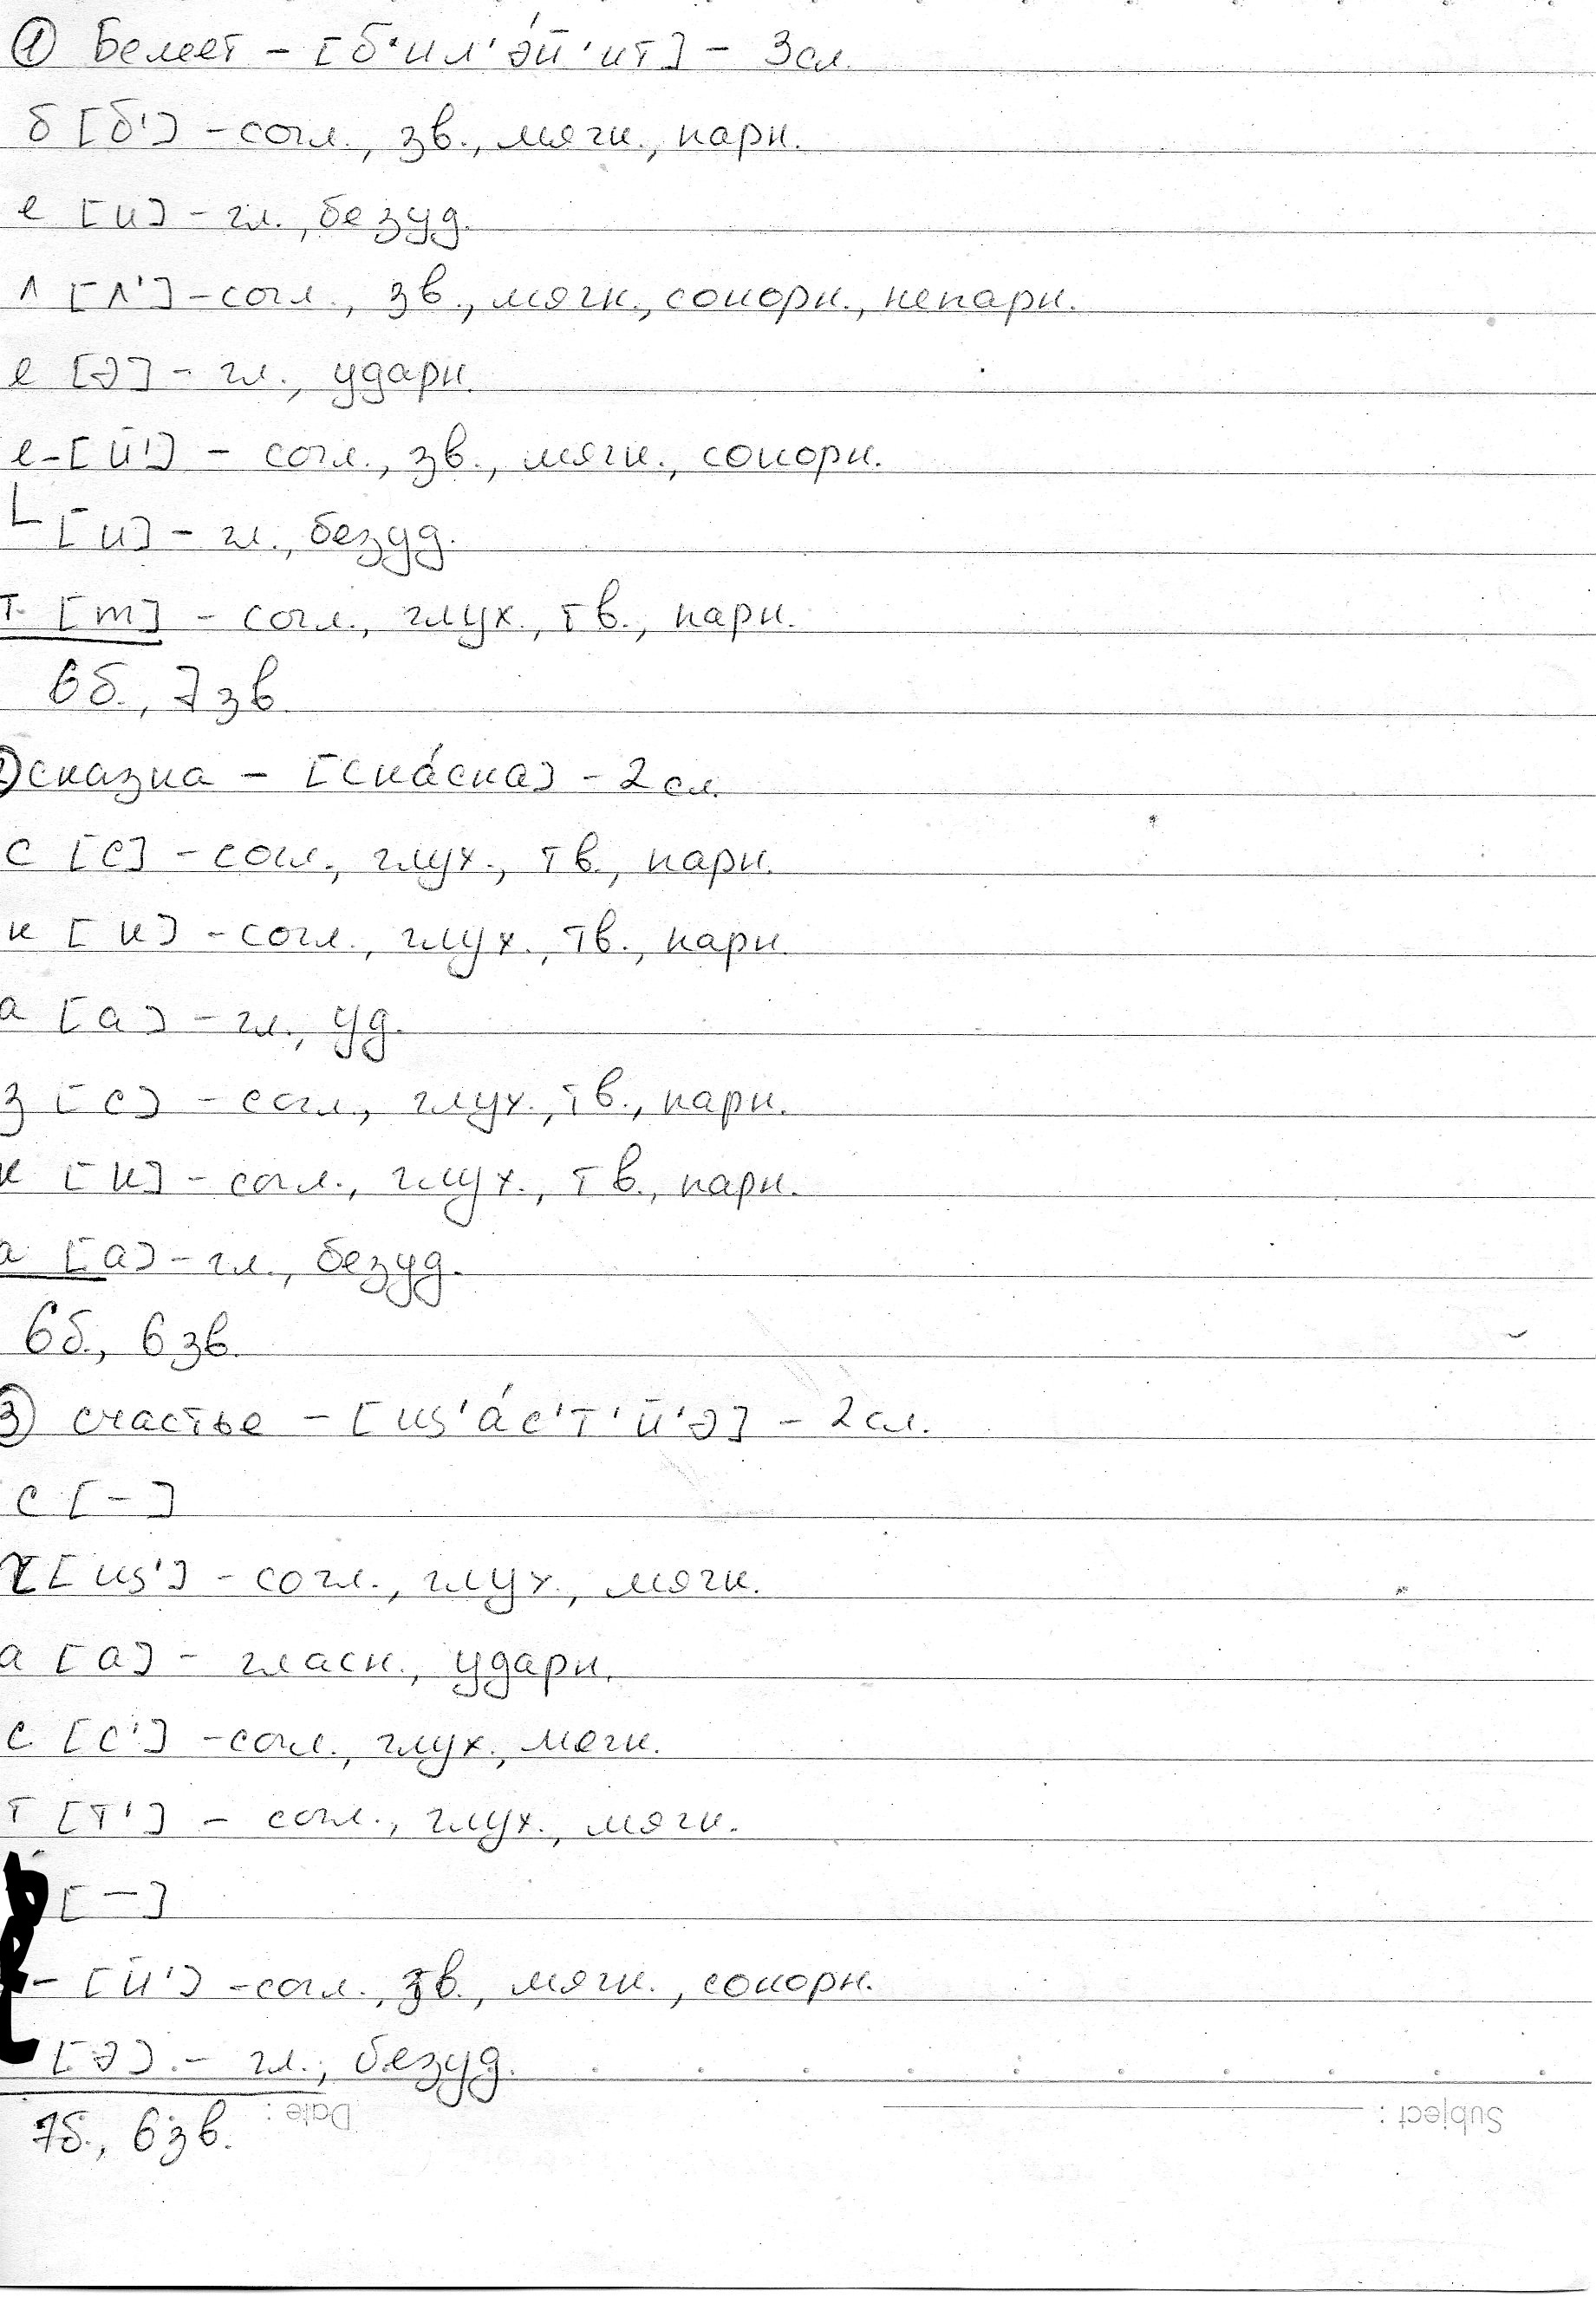 ① Белеет – [б'ил'э́й'ит] – 3 сл.
б [б'] – согл., зв., мягк., парн.
е [и] – гл., безуд.
л [л'] – согл., зв., мягк., сонорн., непарн.
е [э] – гл., ударн.
е – [й'] – согл., зв., мягк., сонорн.
[и] – гл., безуд.
т [т] – согл., глух., тв., парн.
6б., 7 зв.
2) сказка – [ска́ска] – 2 сл.
с [с] – согл., глух., тв., парн.
к [к] – согл., глух., тв., парн.
а [а] – гл., уд.
з [с] – согл., глух., тв., парн.
к [к] – согл., глух., тв., парн.
а [а] – гл., безуд.
6б., 6 зв.
3) счастье – [щ'а́с'т'й'э] – 2 сл.
с [–]
ч [щ'] – согл., глух., мягк.
а [а] – гласн., ударн.
с [с'] – согл., глух., мягк.
т [т'] – согл., глух., мягк.
ь [–]
– [й'] – согл., зв., мягк., сонорн.
[э] – гл., безуд.
7б., 6 зв.
Date :
Subject :